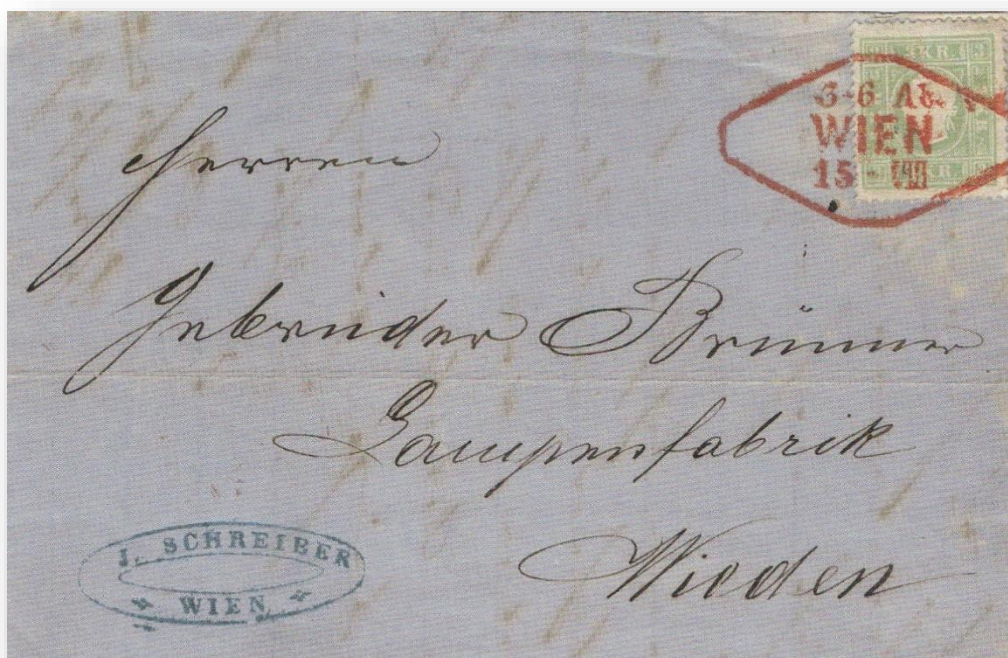 3 KR.
WIEN
15
KR.
Herren
Gebrüder Brünner
Lampenfabrik
Wieden
J. SCHREIBER
WIEN